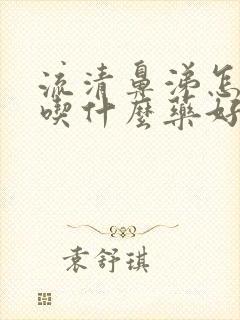 流清鼻涕怎
喫什麼藥好
袁舒琪